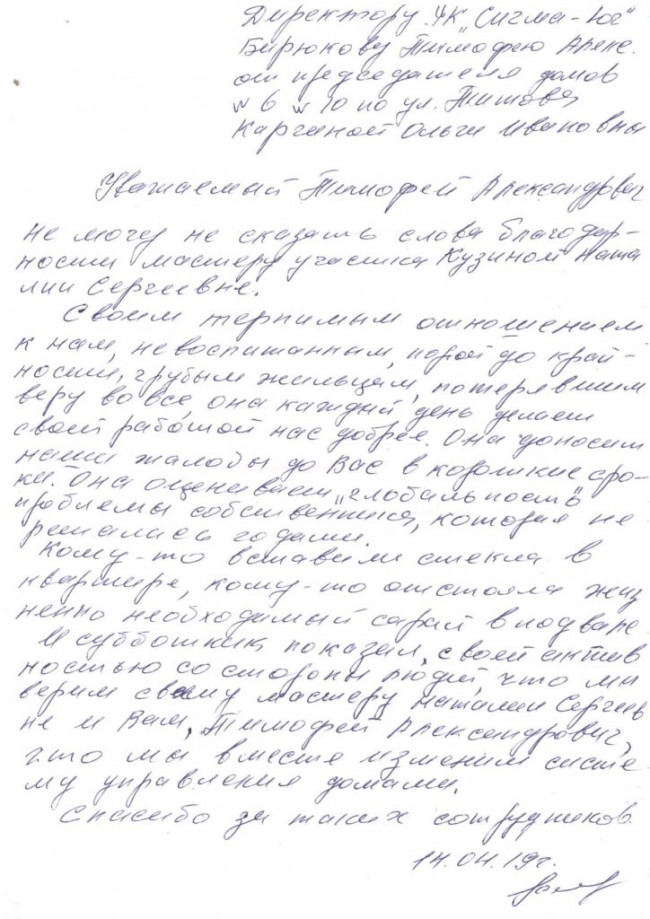 Директору УК "Сигма-Юг"
Бирюкову Тимофею Алекс.
от председателя домов
№ 6 № 10 по ул. Титова
Каргиной Ольги Ивановны
Уважаемый Тимофей Александрович
не могу не сказать слова благодар-
ности мастеру участка Кузиной Ната
лии Сергеевне.
Своим терпимым отношением
к нам, невоспитанным, порой до край-
ности, грубым жильцам, потерявшим
веру во всё, она каждый день делает
своей работой нас добрее. Она доносит
наши жалобы до Вас в короткие сро-
ки. Она оценивает "глобальность"
проблемы собственника, которая не
решалась годами.
Кому-то вставили стекла в
квартире, кому-то отстояла жиз
ненно необходимый сарай в подвале
И субботник показал, своей актив
ностью со стороны людей, что мы
верим своему мастеру Наталии Сергеев
не и Вам, Тимофей Александрович,
что мы вместе изменим систе
му управления домами.
Спасибо за таких сотрудников
14.04.19г.